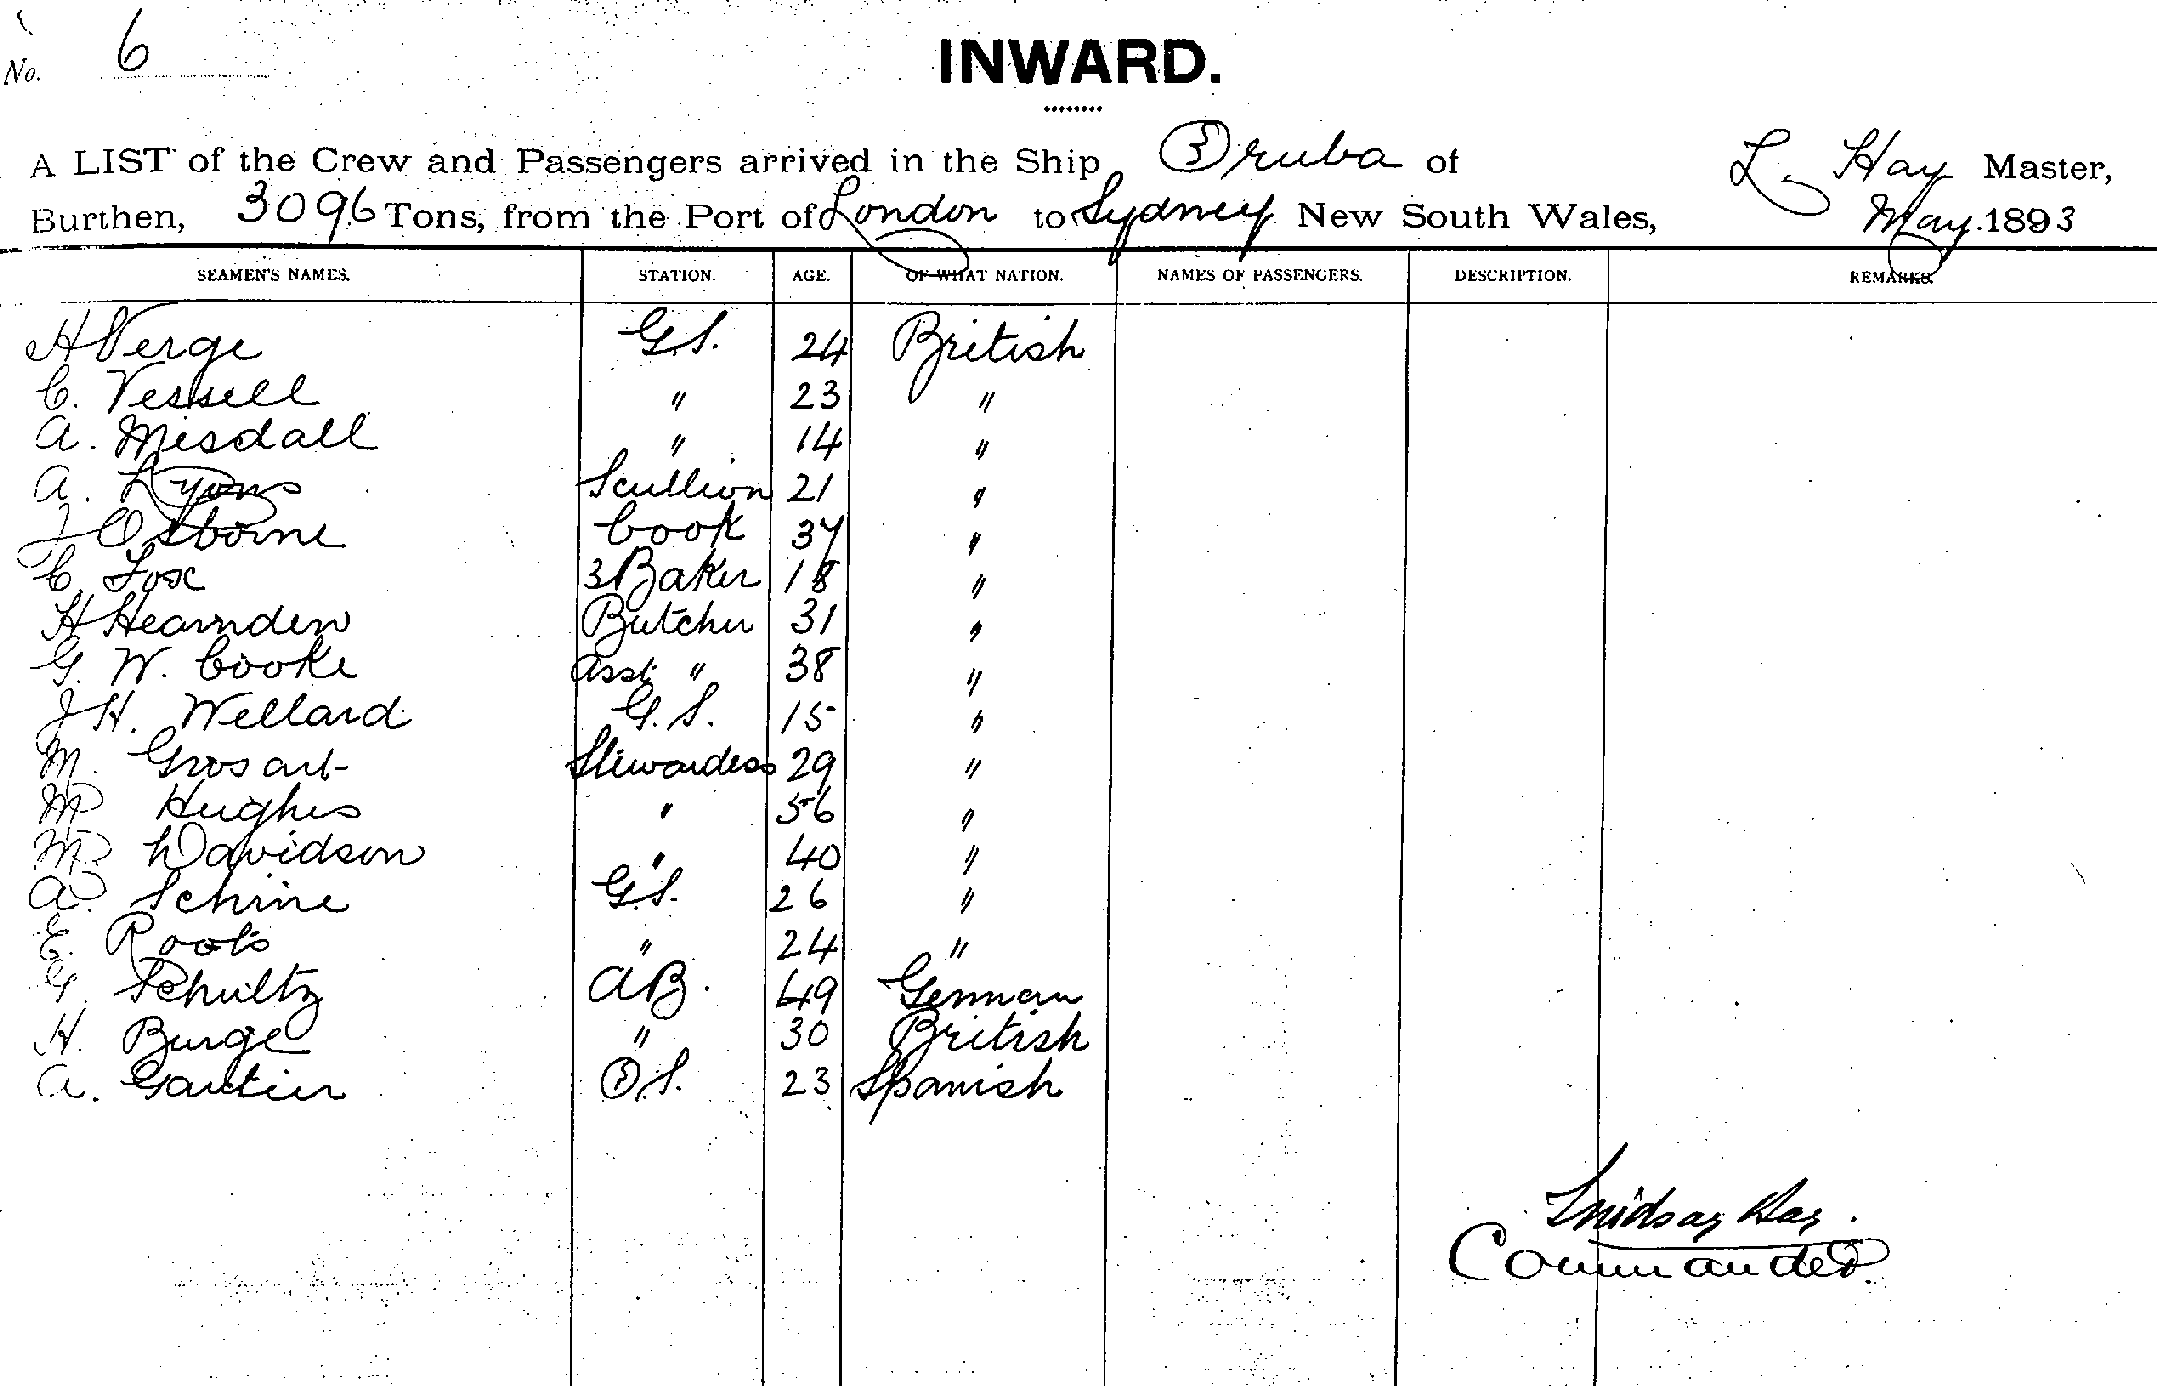 No. 6
INWARD.
A LIST of the Crew and Passengers arrived in the Ship Oruba of L. Hay Master,
Burthen, 3096 Tons, from the Port of London to Sydney New South Wales, May 1893
SEAMEN'S NAMES. STATION. AGE. OF WHAT NATION. NAMES OF PASSENGERS. DESCRIPTION. REMARKS.
H Verge G.S. 24 British
C. Vessell " 23 "
A. Misdall " 14 "
A. Lyons Scullion 21 "
J Osborne Cook 37 "
C. Fox 3 Baker 18 "
H Hearnden Butcher 31 "
G. W. Cooke Asst " 38 "
J H. Wellard G.S. 15 "
M. Grosart Stewardess 29 "
M Hughes " 56 "
M Davidson " 40 "
A. Schine G.S. 26 "
E. Roots " 24 "
G Schultz AB. 49 German
H. Burge " 30 British
A. Gautier O.S. 23 Spanish
Lindsay Hay.
Commander.